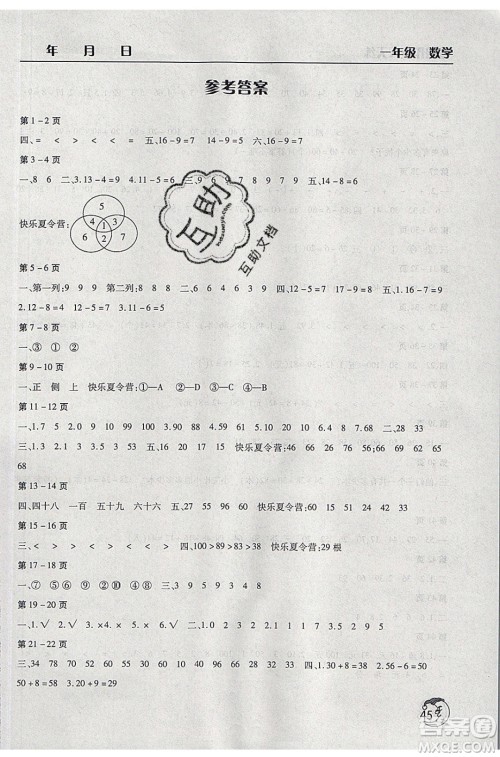 年 月 日 一年级 数学
参考答案
第 1－2 页
四、= < > < < = 五、16－9＝7 14－9＝5 六、16－9＝7
第 3－4 页
一、8 6 二、13－9＝4 11－9＝2 三、9 6 9 7 8 9 3 8 四、15－8＝7 五、14－8＝6
5
4 3
快乐夏令营：
1
6 2 7
第 5－6 页
一、第一列：9 9 9 第二列：7 9 8 8 8 二、6 4 6 4 3 9 三、< > = > 四、1.16－7＝9
2.12－8＝4 3.12－4＝8 五、1.15－7＝8 2.11－5＝6
第 7－8 页
一、③ ① ②
第 9－10 页
一、正 侧 上 快乐夏令营：①—A ②—D ③—B ④—C
第 11－12 页
一、1.7 5 75 2.10 99 29 91 3.100 4.10 20 5.10 6.1 4 7.8 8.68 二、28 33
三、1.35 2.1 3.5 90 4.100 5.50 四、55 快乐夏令营：64 62 46 42 26 24 86 84 82 65
68
第 13－14 页
四、四十八 一百 五十九 六十六 五、27 55 96 60 快乐夏令营：60 15 30 51 88 97
第 15－16 页
三、< > < > < > > < 四、100＞89＞83＞38 快乐夏令营：29 根
第 17－18 页
一、⑦ ⑤ ⑥ ⑨ ② ④ ① ⑧ ⑩ ③ 三、3 9 5 4 9 3 4 8
第 19－20 页
一、√ 二、1.× 2.√ 3.× 4.√ 三、1 0 2 2 3 9 1 7
第 21－22 页
三、34 78 70 52 30 23 60 5 40 80 8 38 四、1.50＋8＝58 2.56－6＝50
50＋8＝58 3.20＋9＝29
45
互助
互助文档
答案圈
MXQE.COM